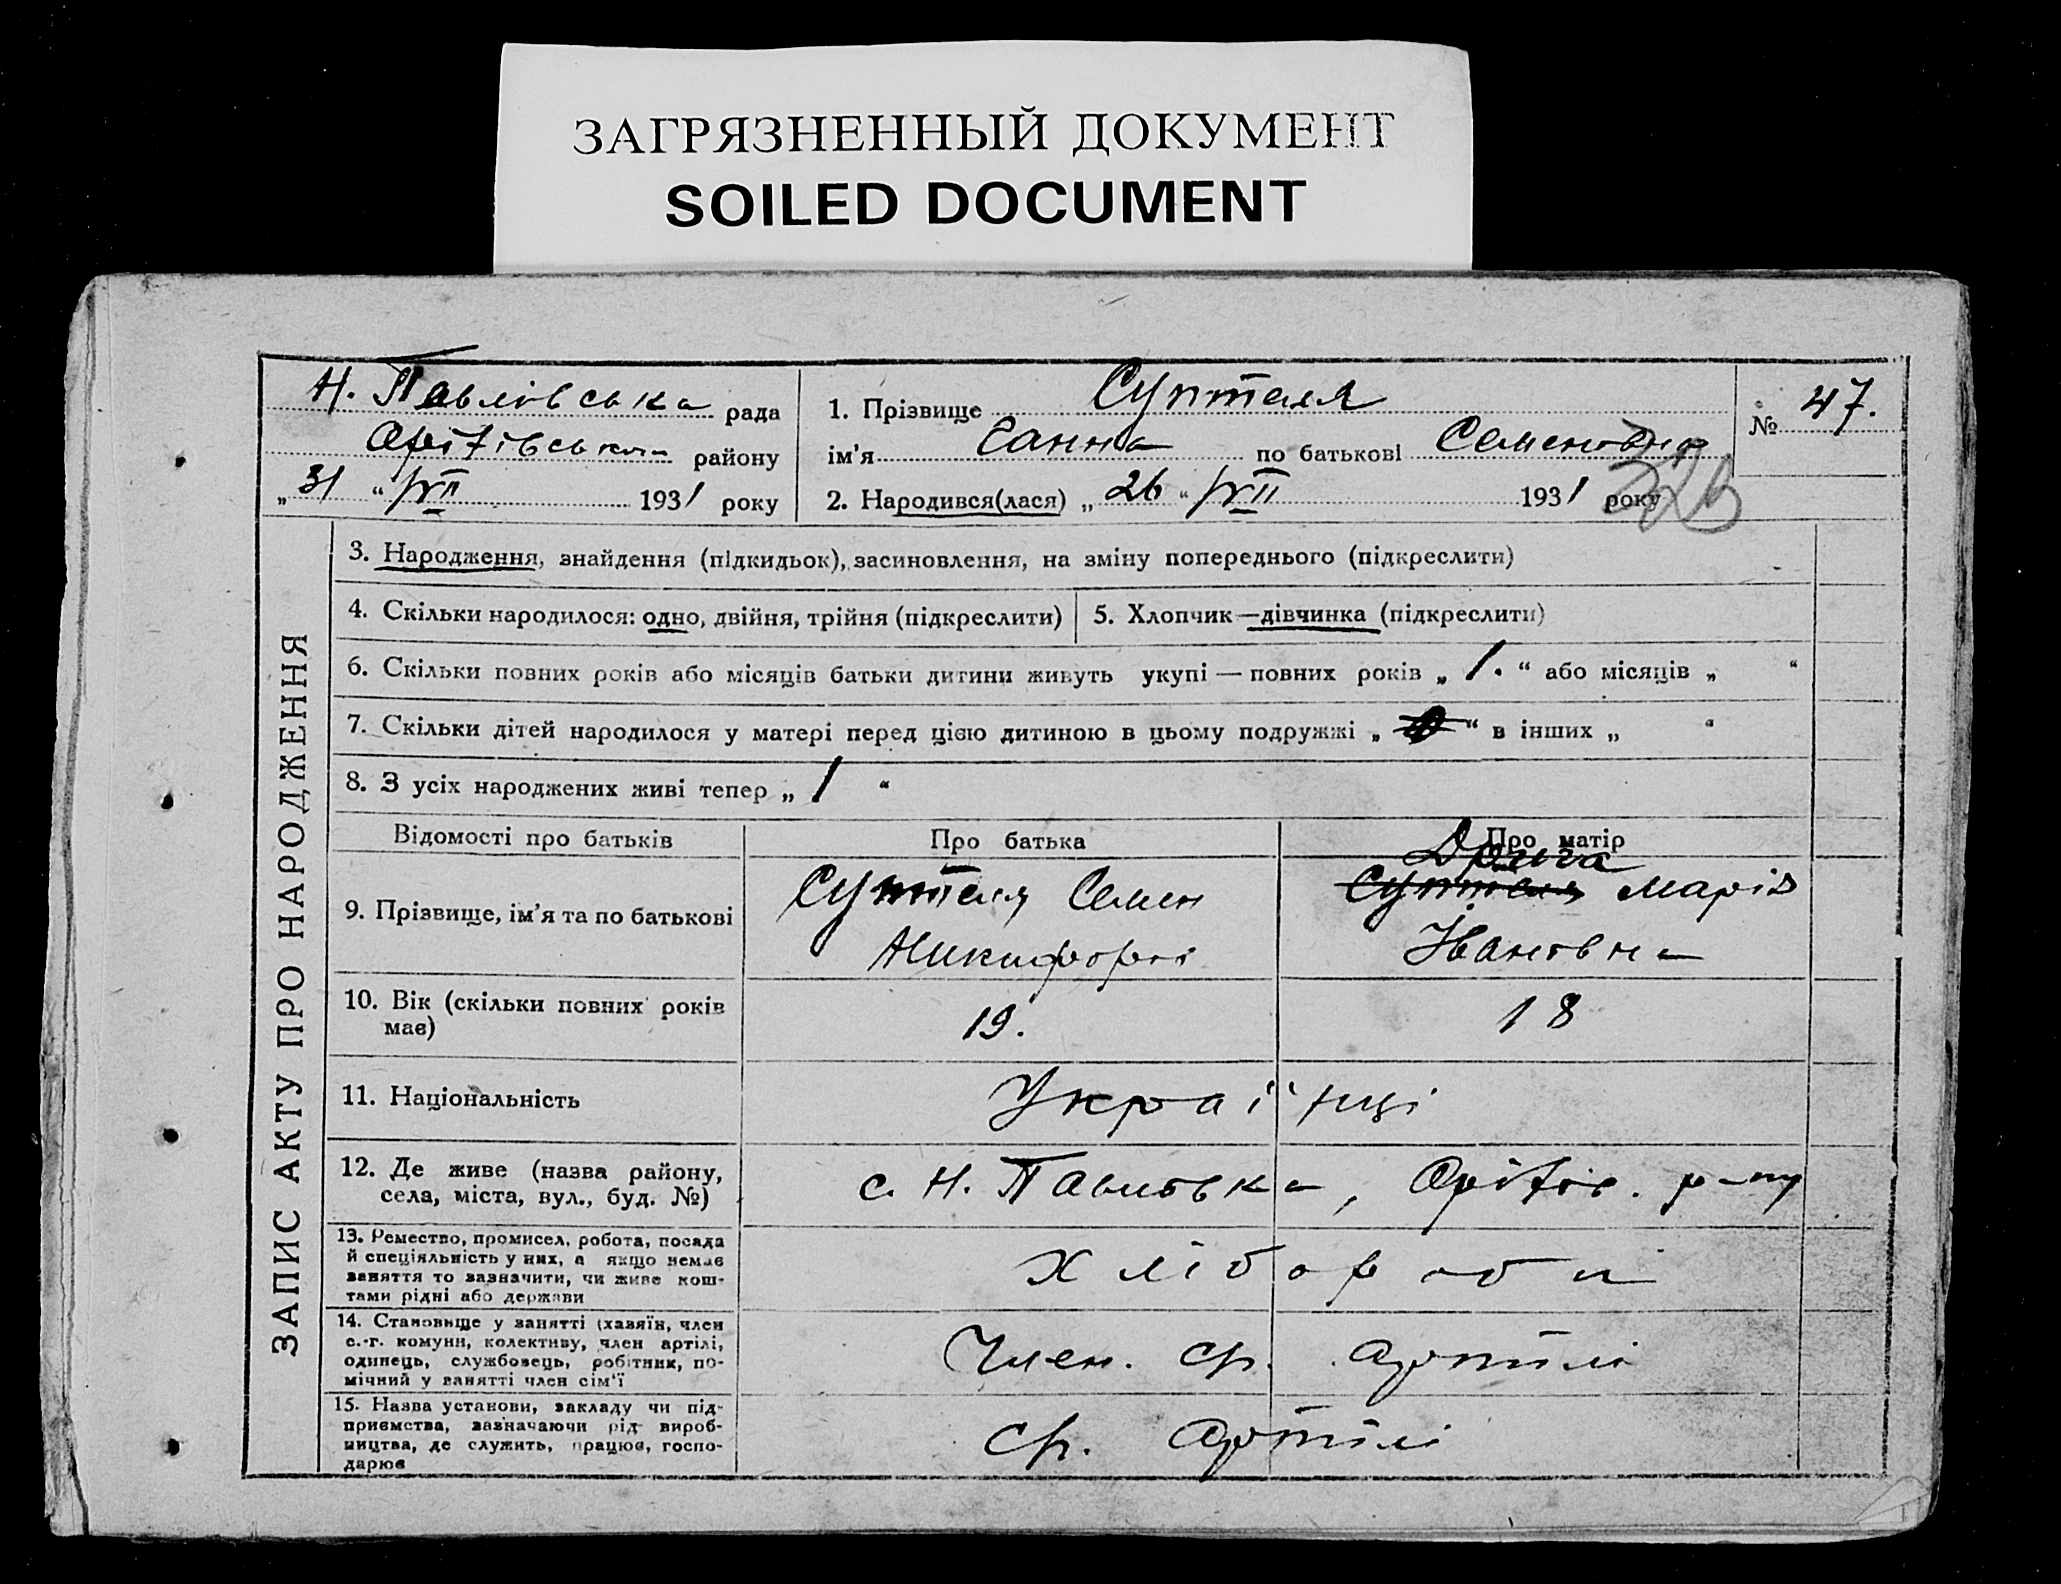 ЗАГРЯЗНЕННЫЙ ДОКУМЕНТ
SOILED DOCUMENT
Н. Павлівська рада
району
„ 31 “ VII 1931 року
1. Прізвище Суптеля
ім'я Ганна по батькові Семеновна
2. Народився(лася) „ 26 “ VII 1931 року
№ 47.
ЗАПИС АКТУ ПРО НАРОДЖЕННЯ
3. Народження, знайдення (підкидьок), засиновлення, на зміну попереднього (підкреслити)
4. Скільки народилося: одно, двійня, трійня (підкреслити)
5. Хлопчик—дівчинка (підкреслити)
6. Скільки повних років або місяців батьки дитини живуть укупі — повних років „ 1. “ або місяців „ “
7. Скільки дітей народилося у матері перед цією дитиною в цьому подружжі „ “ в інших „ “
8. З усіх народжених живі тепер „ 1 “
Відомості про батьків
Про батька
Про матір
9. Прізвище, ім'я та по батькові
Суптеля Семен
Никифорові
Суптеля Марія
Івановна
10. Вік (скільки повних років
має)
19.
18
11. Національність
Українці
12. Де живе (назва району,
села, міста, вул., буд. №)
с. Н. Павловка, р-ну
13. Ремество, промисел, робота, посада
й спеціяльність у них, а якщо немає
заняття то зазначити, чи живе кош-
тами рідні або держави
Хлібороби
14. Становище у занятті (хазяїн, член
с.-г. комуни, колективу, член артілі,
одинець, службовець, робітник, по-
мічний у занятті член сім'ї
Член. ср. артілі
15. Назва установи, закладу чи під-
приємства, зазначаючи рід вироб-
ництва, де служить, працює, госпо-
дарює
ср. артілі